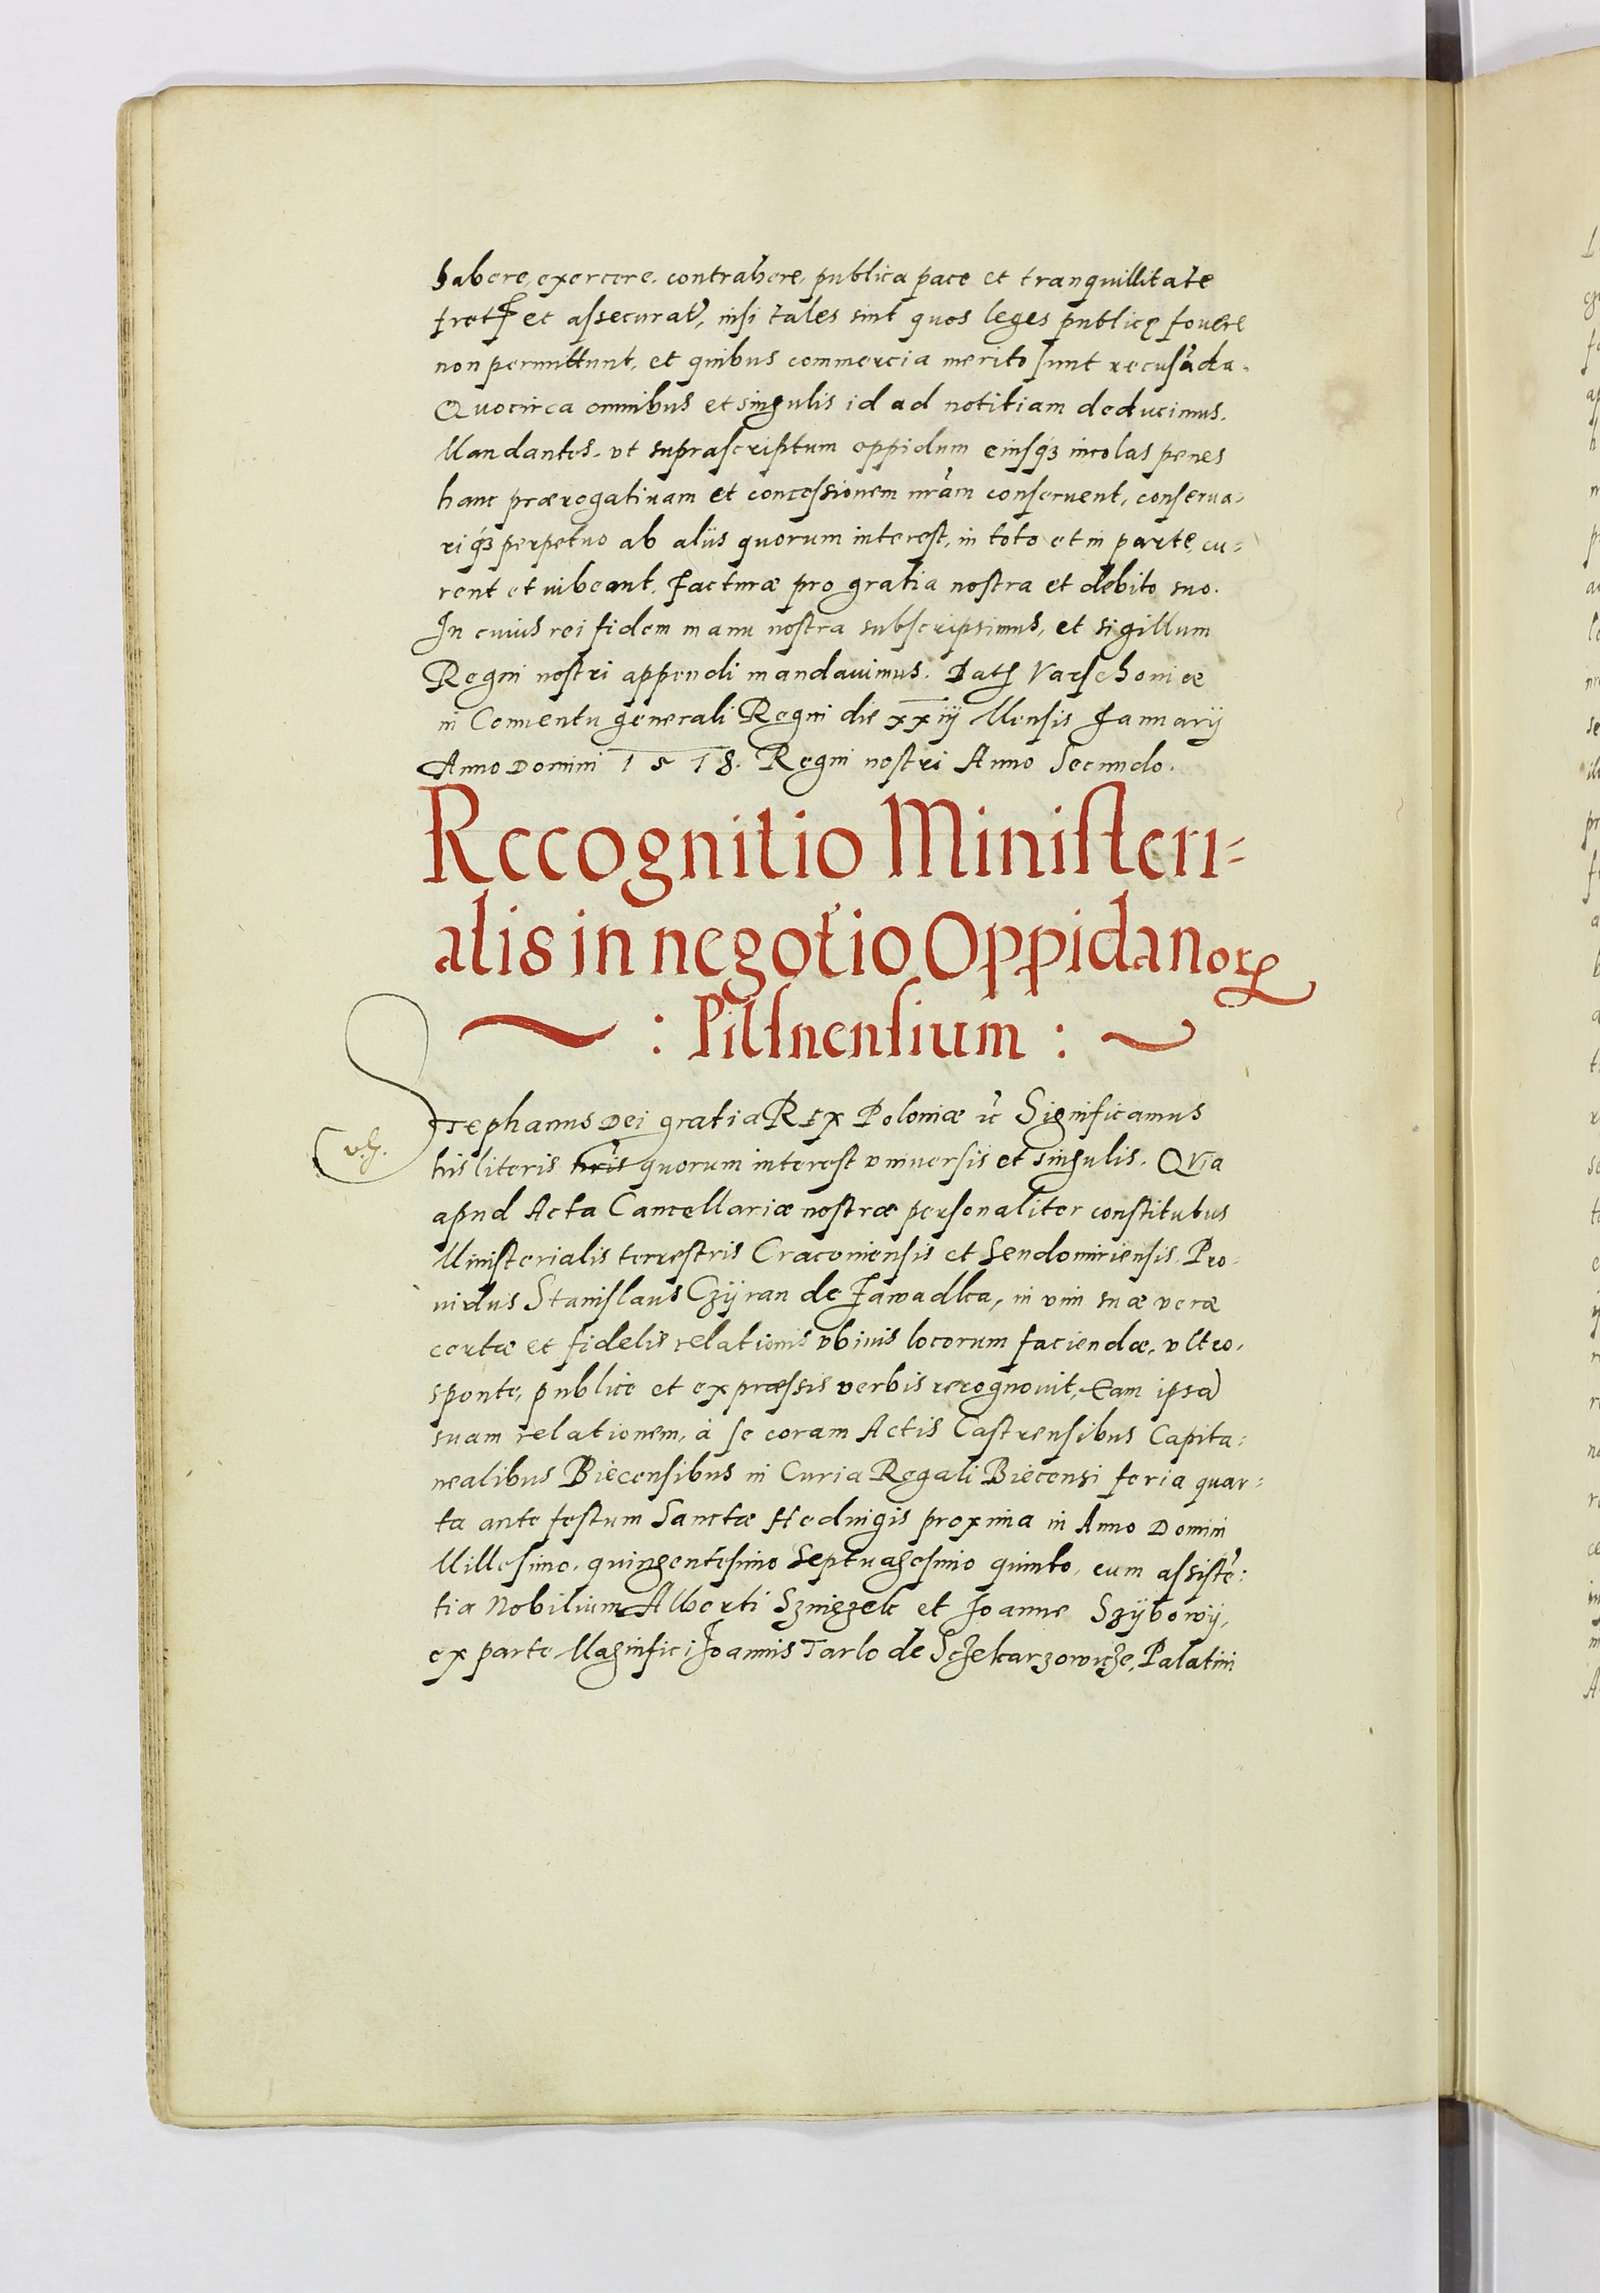 habere, exercere, contrahere, publica pace et tranquillitate
freti et assecurati, nisi tales sint quos leges publicę fovere
non permittunt, et quibus commercia merito sunt recusāda.
Quocirca omnibus et singulis id ad notitiam deducimus.
Mandantes, vt suprascriptum oppidum eiusqʒ incolas penes
hanc prærogativam et concessionem nrām conseruent, conserua-
riqʒ perpetuo ab aliis quorum interest, in toto et in parte, cu-
rent et iubeant, facturæ pro gratia nostra et debito suo.
In cuius rei fidem manu nostra subscripsimus, et sigillum
Regni nostri appendi mandauimus. Datę Varschoviæ
in Conuentu generali Regni die xxiij Mensis Januarij
Anno Domini 1578. Regni nostri Anno Secundo.
Recognitio Ministeri-
alis in negotio Oppidanorꝝ
: Pilsnensium :
Stephanus Dei gratia Rex Poloniæ ēc Significamus
his literis nr̄is quorum interest vniuersis et singulis. Quia
apud Acta Cancellariæ nostræ personaliter constitutus
Ministerialis terrestris Cracouiensis et Sendomiriensis Pro-
uidus Stanislaus Czijran de Zawadka, in vim suæ veræ
certæ et fidelis relationis vbiuis locorum faciendæ, vltro,
sponte, publice et expræssis verbis recognouit, Eam ipsā
suam relationem, à se coram Actis Castrensibus Capita-
nealibus Biecensibus in Curia Regali Biecensi feria quar-
ta ante festum Sanctæ Heduigis proxima in Anno Domini
Millesimo, quingentesimo Septuagesimo quinto, cum assistē-
tia Nobilium Alberti et Joanne
ex parte Magnifici Joannis Tarlo de Sczekarzowicze, Palatini